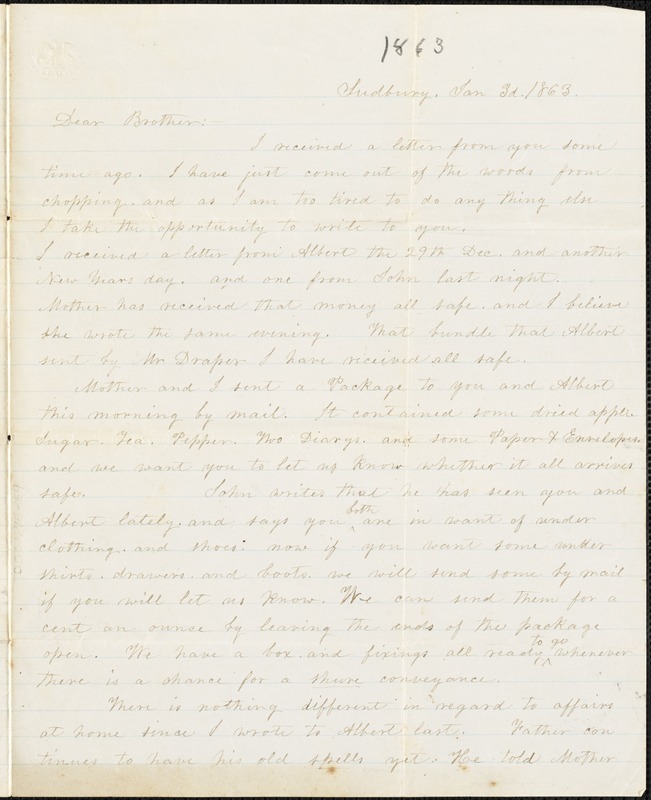 1863
Sudbury. Jan 3d. 1863.
Dear Brother:-
I received a letter from you some
time ago. I have just come out of the woods from
chopping. and as I am too tired to do any thing else
I take the opportunity to write to you.
I received a letter from Albert the 29th Dec. and another
New Years day. and one from John last night.
Mother has received that money all safe. and I believe
she wrote the same evening. That bundle that Albert
sent by Mr Draper I have received all safe.
Mother and I sent a Package to you and Albert
this morning by mail. It contained some dried apple.
Sugar. Tea. Pepper. Two Diarys. and some Paper & Envelopes.
and we want you to let us know whether it all arrives
safe. John writes that he has seen you and
both
Albert lately. and says you ^ are in want of under
clothing. and shoes. now if you want some under
shirts. drawers. and boots. we will send some by mail
if you will let us know. We can send them for a
cent an ounce by leaving the ends of the package
to go
open. We have a box. and fixings all ready ^ whenever
there is a chance for a shure conveyance.
There is nothing different in regard to affairs
at home since I wrote to Albert last. Father con
tinues to have his old spells yet. He told Mother